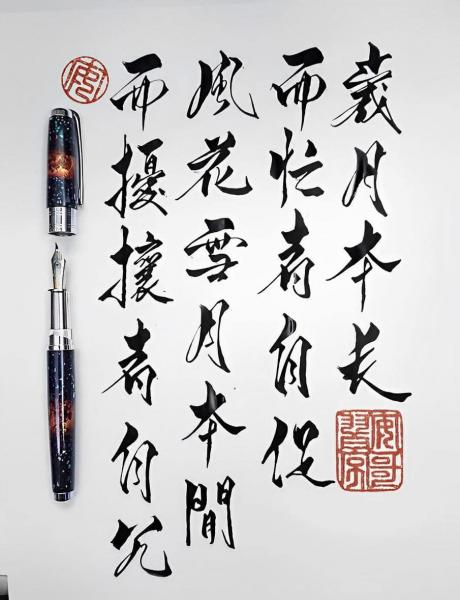 歲月本長
而忙者自促
風花雪月本閒
而擾攘者自冗